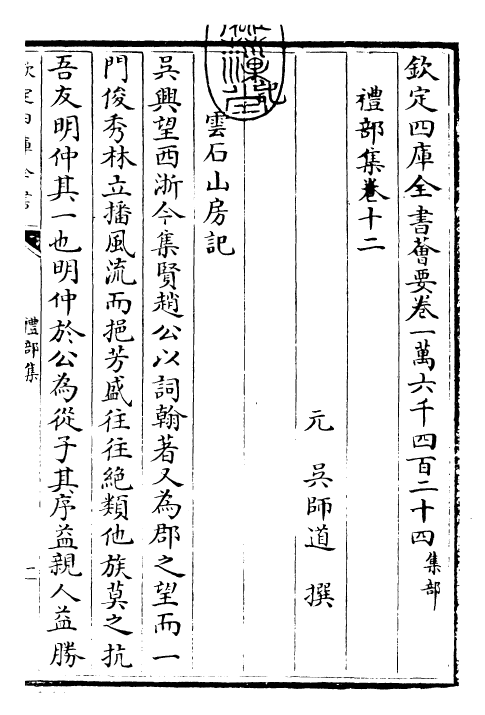 欽定四庫全書薈要卷一萬六千四百二十四集部
禮部集卷十二
元　吳師道　撰
雲石山房記
吳興望西浙今集賢趙公以詞翰著又為郡之望而一
門俊秀林立播風流而挹芳盛往往絶類他族莫之抗
吾友明仲其一也明仲於公為從子其序益親人益勝
禮部集